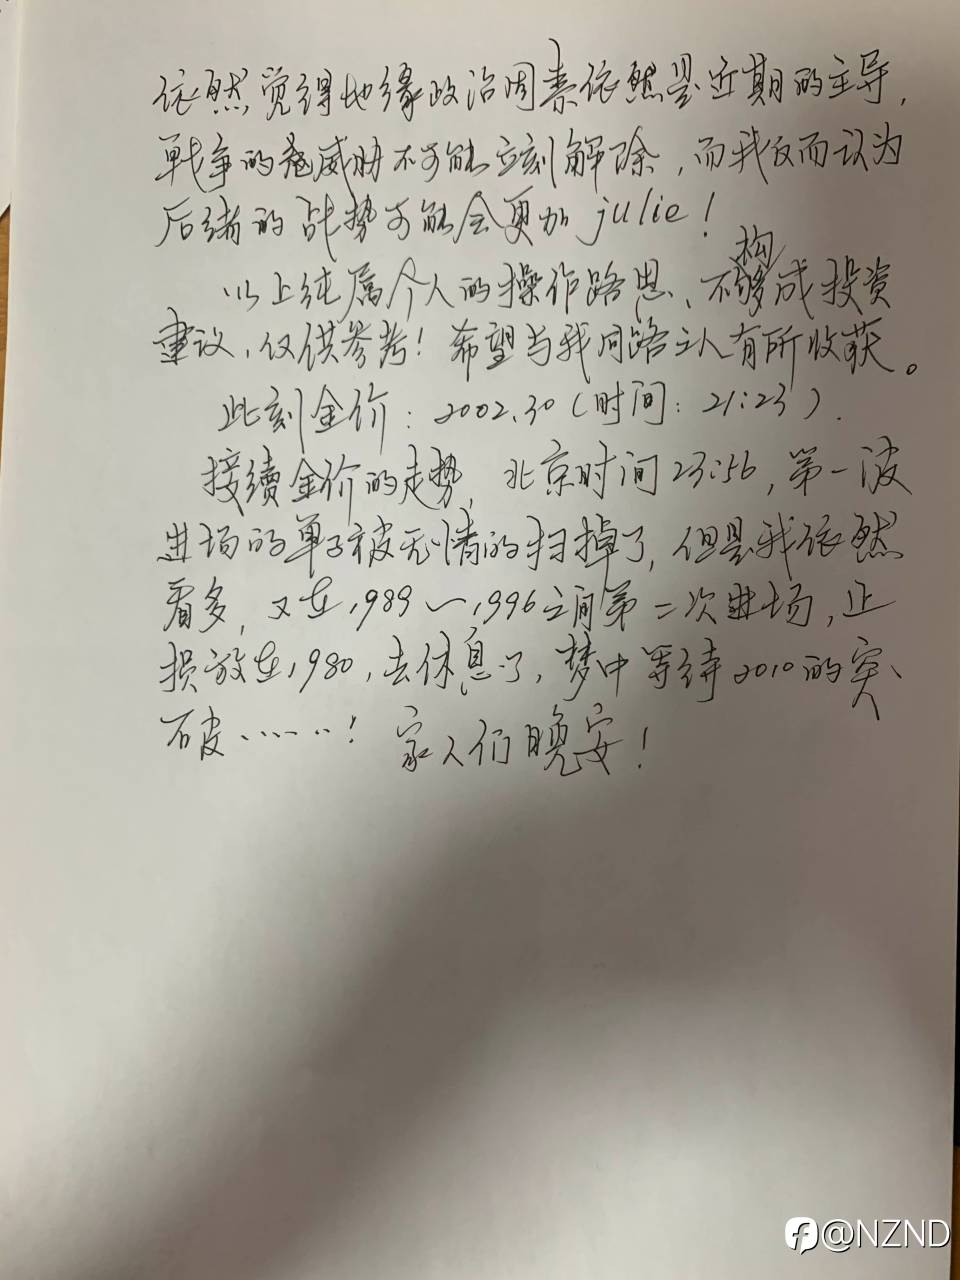 依然觉得地缘政治因素依然是近期的主导,
战争的威胁不可能立刻解除,而我反而认为
后续的战势可能会更加julie!
以上纯属个人的操作路思、不构成投资
建议,仅供参考!希望与我同路之人有所收获。
此刻金价:2002.30(时间:21:23).
接续金价的走势,北京时间23:56,第一波
进场的单子被无情的扫掉了,但是我依然
看多,又在1989~1996之间第二次进场,止
损放在1980,去休息了,梦中等待2010的突
破……!家人们晚安!
@NZND